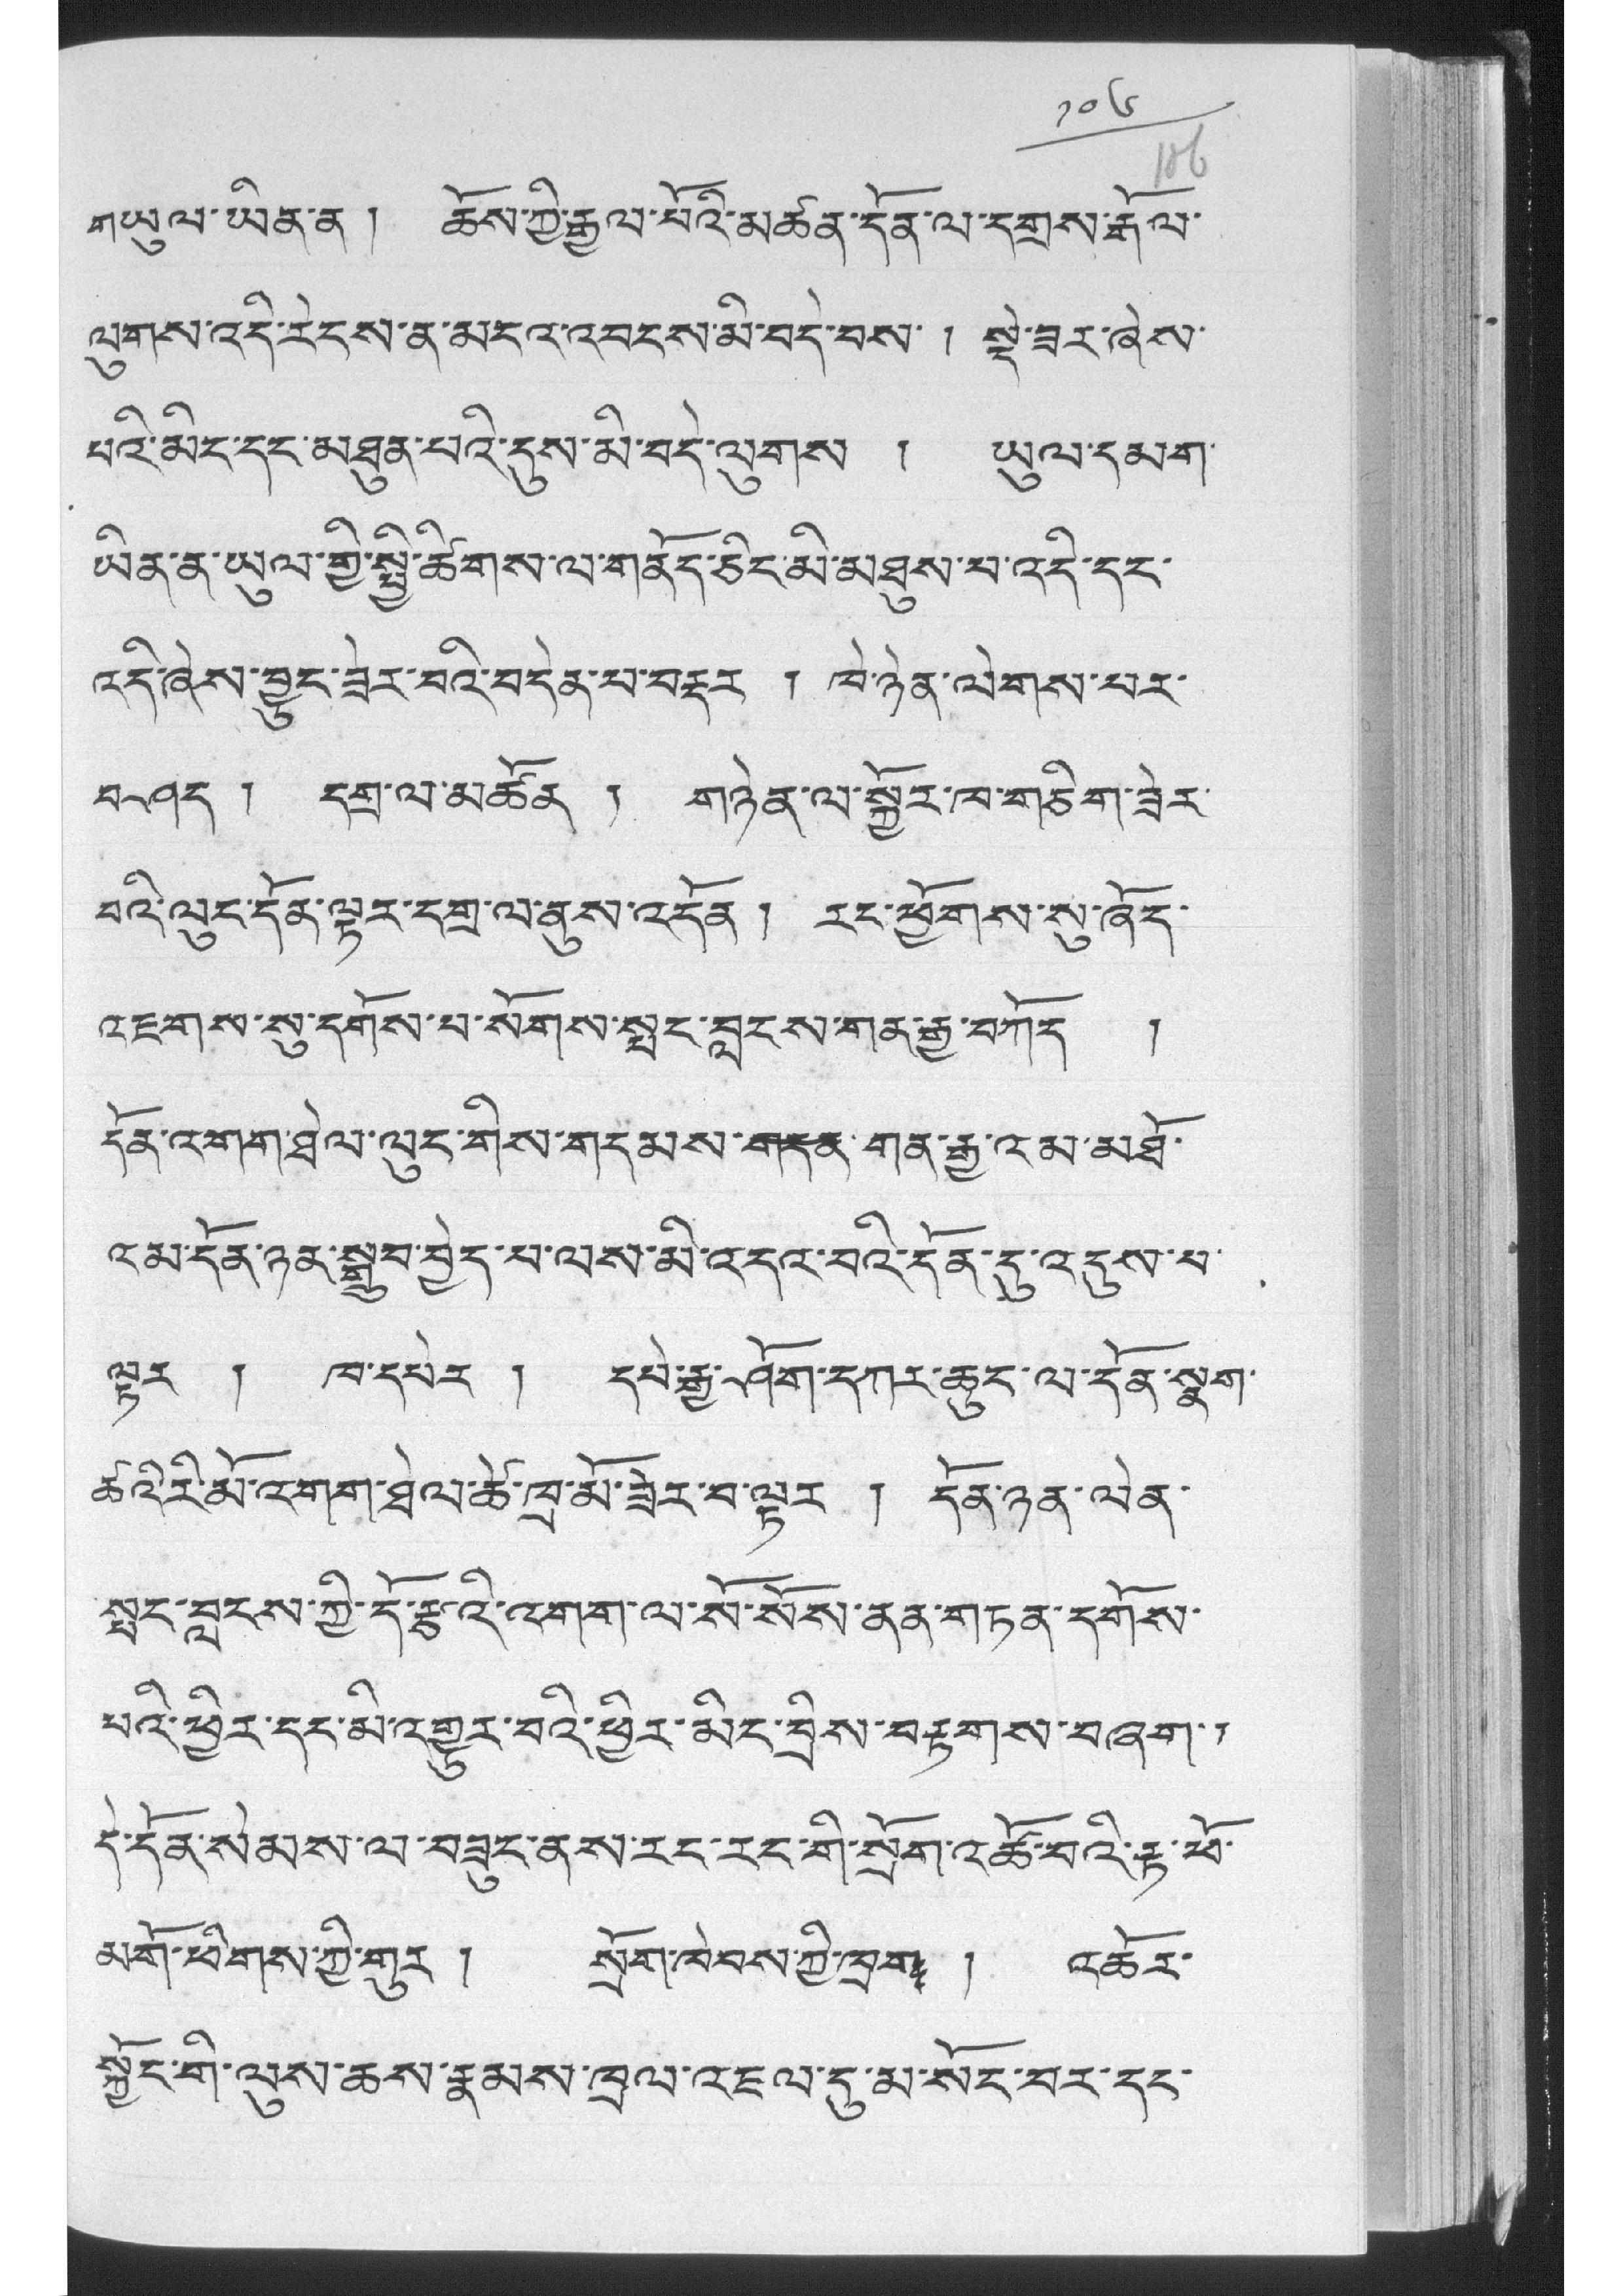 ༡༠༦
106
གཡུལ་ཡིན་ན། ཆོས་ཀྱི་རྒྱལ་པོའི་མཚན་དོན་ལ་དགྲས་རྒོལ་
ལུགས་འདི་རེངས་ན་མངའ་འབངས་མི་བདེ་བས་། སྡེ་ཟར་ཞེས་
པའི་མིང་དང་མཐུན་པའི་དུས་མི་བདེ་ལུགས །ཡུལ་དམག་
ཡིན་ན་ཡུལ་གྱི་སྤྱི་ཚིགས་ལ་གནོད་ཅིང་མི་མཐུས་པ་འདི་དང་
འདི་ཞེས་བྱུང་ཟེར་བའི་བདེན་པ་བརྡར །ཁེ་ཉེན་ལེགས་པར་
བཤད། དགྲ་ལ་མཚོན །གཉེན་ལ་སྐྱོར་ཁ་གཅིག་ཟེར་
བའི་ལུང་དོན་ལྟར་དགྲ་ལ་ནུས་འདོན། རང་ཕྱོགས་སུ་ཞོད་
འཇགས་སུ་དགོས་པ་སོགས་སྤང་བླངས་གན་རྒྱ་བཀོད །
དོན་འགག་ཐེལ་ལུང་གིས་གདམས་གདན་གན་རྒྱ་འམ་མཐོ་
འམ་དོན་ཉན་སྒྲུབ་བྱེད་པ་ལས་མི་འདའ་བའི་དོན་དུ་འདུས་པ་
ལྟར །ཁ་དཔེར །དཔེ་རྒྱ་ཤོག་དཀར་ཆུང་ལ་དོན་སྣག་
ཚའི་རི་མོ་འགག་ཐེལ་ཚེ་ཁྲ་མོ་ཟེར་བ་ལྟར །དོན་ཉན་ལེན་
སྤང་བླངས་ཀྱི་དོ་རྩའི་འགག་ལ་སོ་སོས་ནན་གཏན་དགོས་
པའི་ཕྱིར་དང་མི་འགྱུར་བའི་ཕྱིར་མིང་བྲིས་བརྟགས་བཞག་།
དེ་དོན་སེམས་ལ་བཟུང་ནས་རང་རང་གི་སྲོག་འཚོ་བའི་རྟ་ཕོ་
མགོ་ཕིགས་ཀྱི་གུར །སྲོག་ཁེབས་ཀྱི་ཁྲབ །འཚོར་
སྐྱོང་གི་ལུས་ཆས་རྣམས་ཁྲལ་འཇལ་དུ་མ་སོང་བར་དང་